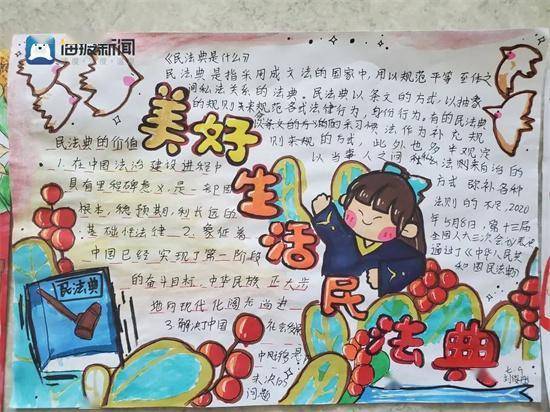 海报新闻
《民法典是什么》
民法典是指采用成文法的国家中,用以规范平等主体之
间私法关系的法典。民法典以条文的方式,以抽象
的规则来规范各式法律行为,身份行为。有的民法典
法作为补充规
则来规的方式,此外也多半观
以当事人之间
法则来自治的
方式 弥补各种
法则的不足,2020
年5月8日,第十三届
全国人大三次会
通过了《中华人民共
和国民法典》
美好生活民法典
民法典的价值
1.在中国法治建设进程中
具有里程碑意义,是一部固
根本,稳预期,利长远的
基础性法律 2.
中国已经实现了第一阶段
的奋斗目标,中华民族正大步
地向现代化阔步前进
3.解决了中国
求次的
问题
民法典